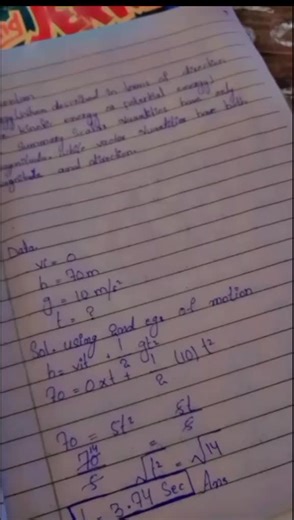 described in terms of direction
kinetic energy or potential energy)
summary, scalar quantities have only
magnitude, while vector quantities have both
magnitude and direction
Data
vi = 0
h = 70m
g = 10 m/s²
t = ?
Sol. using 2nd eqs of motion
h = vit + 1/2 gt²
70 = 0xt + 1/2 (10) t²
70 = 5t²
70/5 14 5t/5
√t² = √14
t = 3.74 Sec Ans